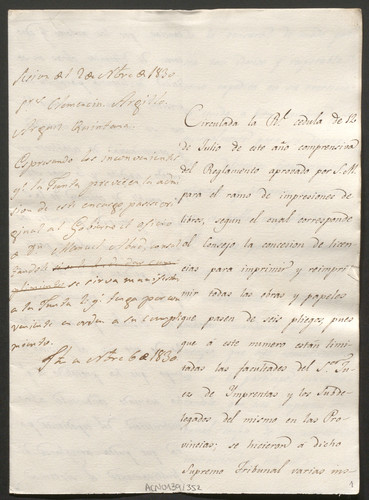 Sesion del 2 de Nbre. de 1830
pres. Clemencin Argüello
Miguel Quintana
Expresando los inconvenientes
qe. la Junta prevee en la
sion de este encargo pase
original al Gobierno el oficio
de Dn. Manuel Abad
se sirva manifestar
a la Junta lo qe. tenga por con-
veniente en orden a su cumpli-
miento.
Fho. a Nbre. 6 de 1830
Circulada la Rl. cedula de 12
de Julio de este año comprensiva
del Reglamento aprovado por S. M.
para el ramo de impresiones de
libros, segun el cual corresponde
al consejo la concesion de licen-
cias para imprimir y reimpri-
mir todas las obras y papeles
que pasen de seis pliegos, pues
que á este numero estan limi-
tadas las facultades del Sor. Ju-
ez de Imprentas y los Subde-
legados del mismo en las Pro-
vincias; se hicieron á dicho
Supremo Tribunal varias ins-
ACN0139/352
1